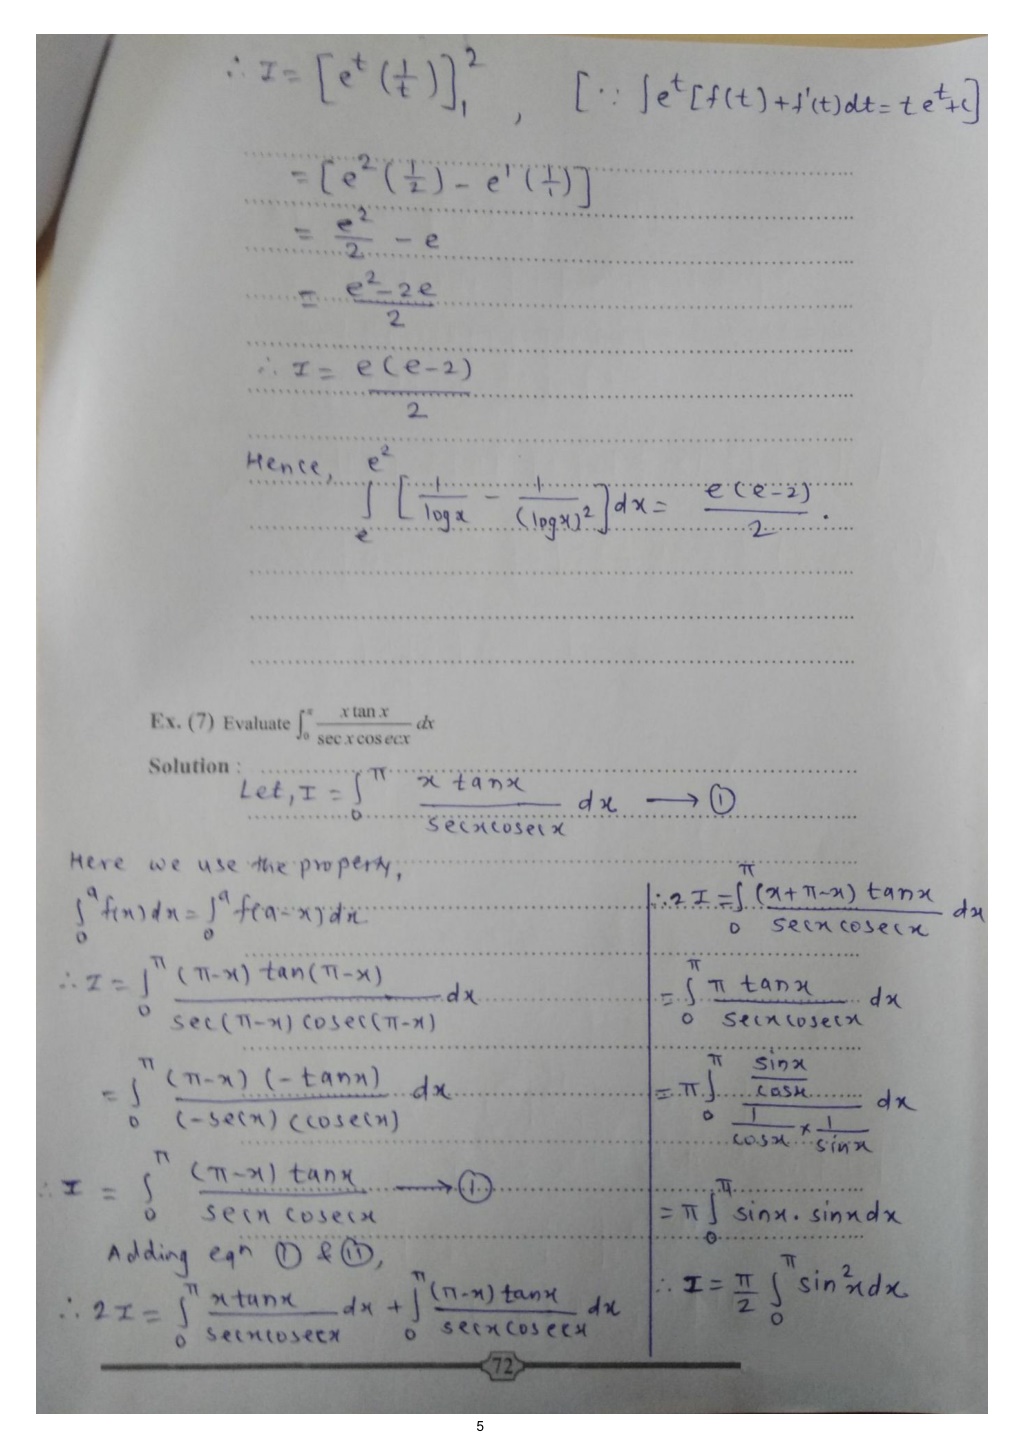 ∴ I = [e^t (1/t)]_1^2 , [∵ ∫e^t [f(t) + f'(t) dt = t e^t + c]
= [e^2 (1/2) - e^1 (1/1)]
= e^2/2 - e
= (e^2 - 2e)/2
∴ I = e(e-2)/2
Hence, ∫_e^{e^2} [1/log x - 1/(log x)^2] dx = e(e-2)/2 .
Ex. (7) Evaluate ∫_0^π (x tan x)/(sec x cos ecx) dx
Solution :
Let, I = ∫_0^π (x tanx)/(secx cosecx) dx → ①
Here we use the property,
∫_0^a f(x) dx = ∫_0^a f(a-x) dx
∴ I = ∫_0^π ((π-x) tan(π-x))/(sec(π-x) cosec(π-x)) dx
= ∫_0^π ((π-x) (-tanx))/((-secx) (cosecx)) dx
∴ I = ∫_0^π ((π-x) tanx)/(secx cosecx) → ①
Adding eqn ① & ⑪,
∴ 2I = ∫_0^π (x tanx)/(secx cosecx) dx + ∫_0^π ((π-x) tanx)/(secx cosecx) dx
∴ 2I = ∫_0^π ((x+π-x) tanx)/(secx cosecx) dx
= ∫_0^π (π tanx)/(secx cosecx) dx
= π ∫_0^π (sinx/cosx)/(1/cosx × 1/sinx) dx
= π ∫_0^π sinx . sinx dx
∴ I = π/2 ∫_0^π sin^2x dx
72
5